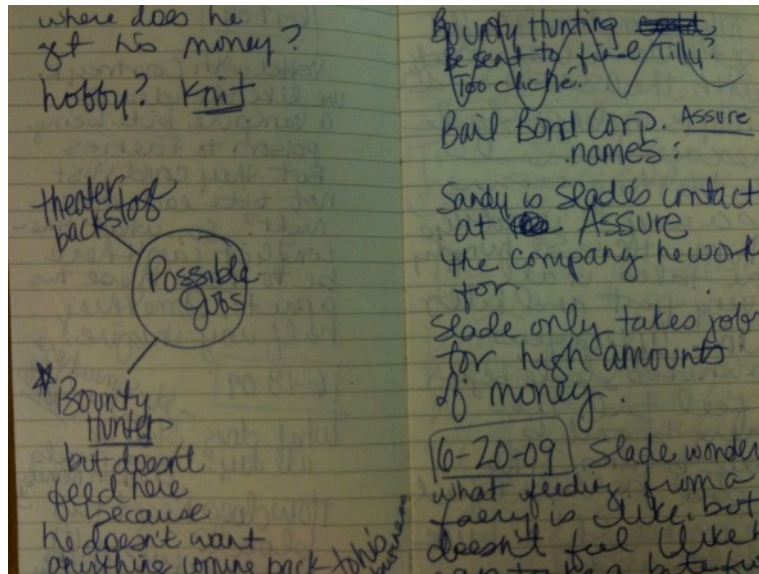 where does he
get his money?
hobby? Knit
theater
backstage
Possible
Jobs
Bounty
Hunter
but doesn't
feed here
because
he doesn't want
anything coming back to his
business
Bounty Hunting
Be sent to find Tilly?
Too cliché.
Bail Bond Corp. Assure
names:
Sandy is Slade's contact
at Assure
the company he work
for.
Slade only takes job
for high amounts
of money.
6-20-09 Slade wonder
what feeding from a
faery is like, but
doesn't feel like h